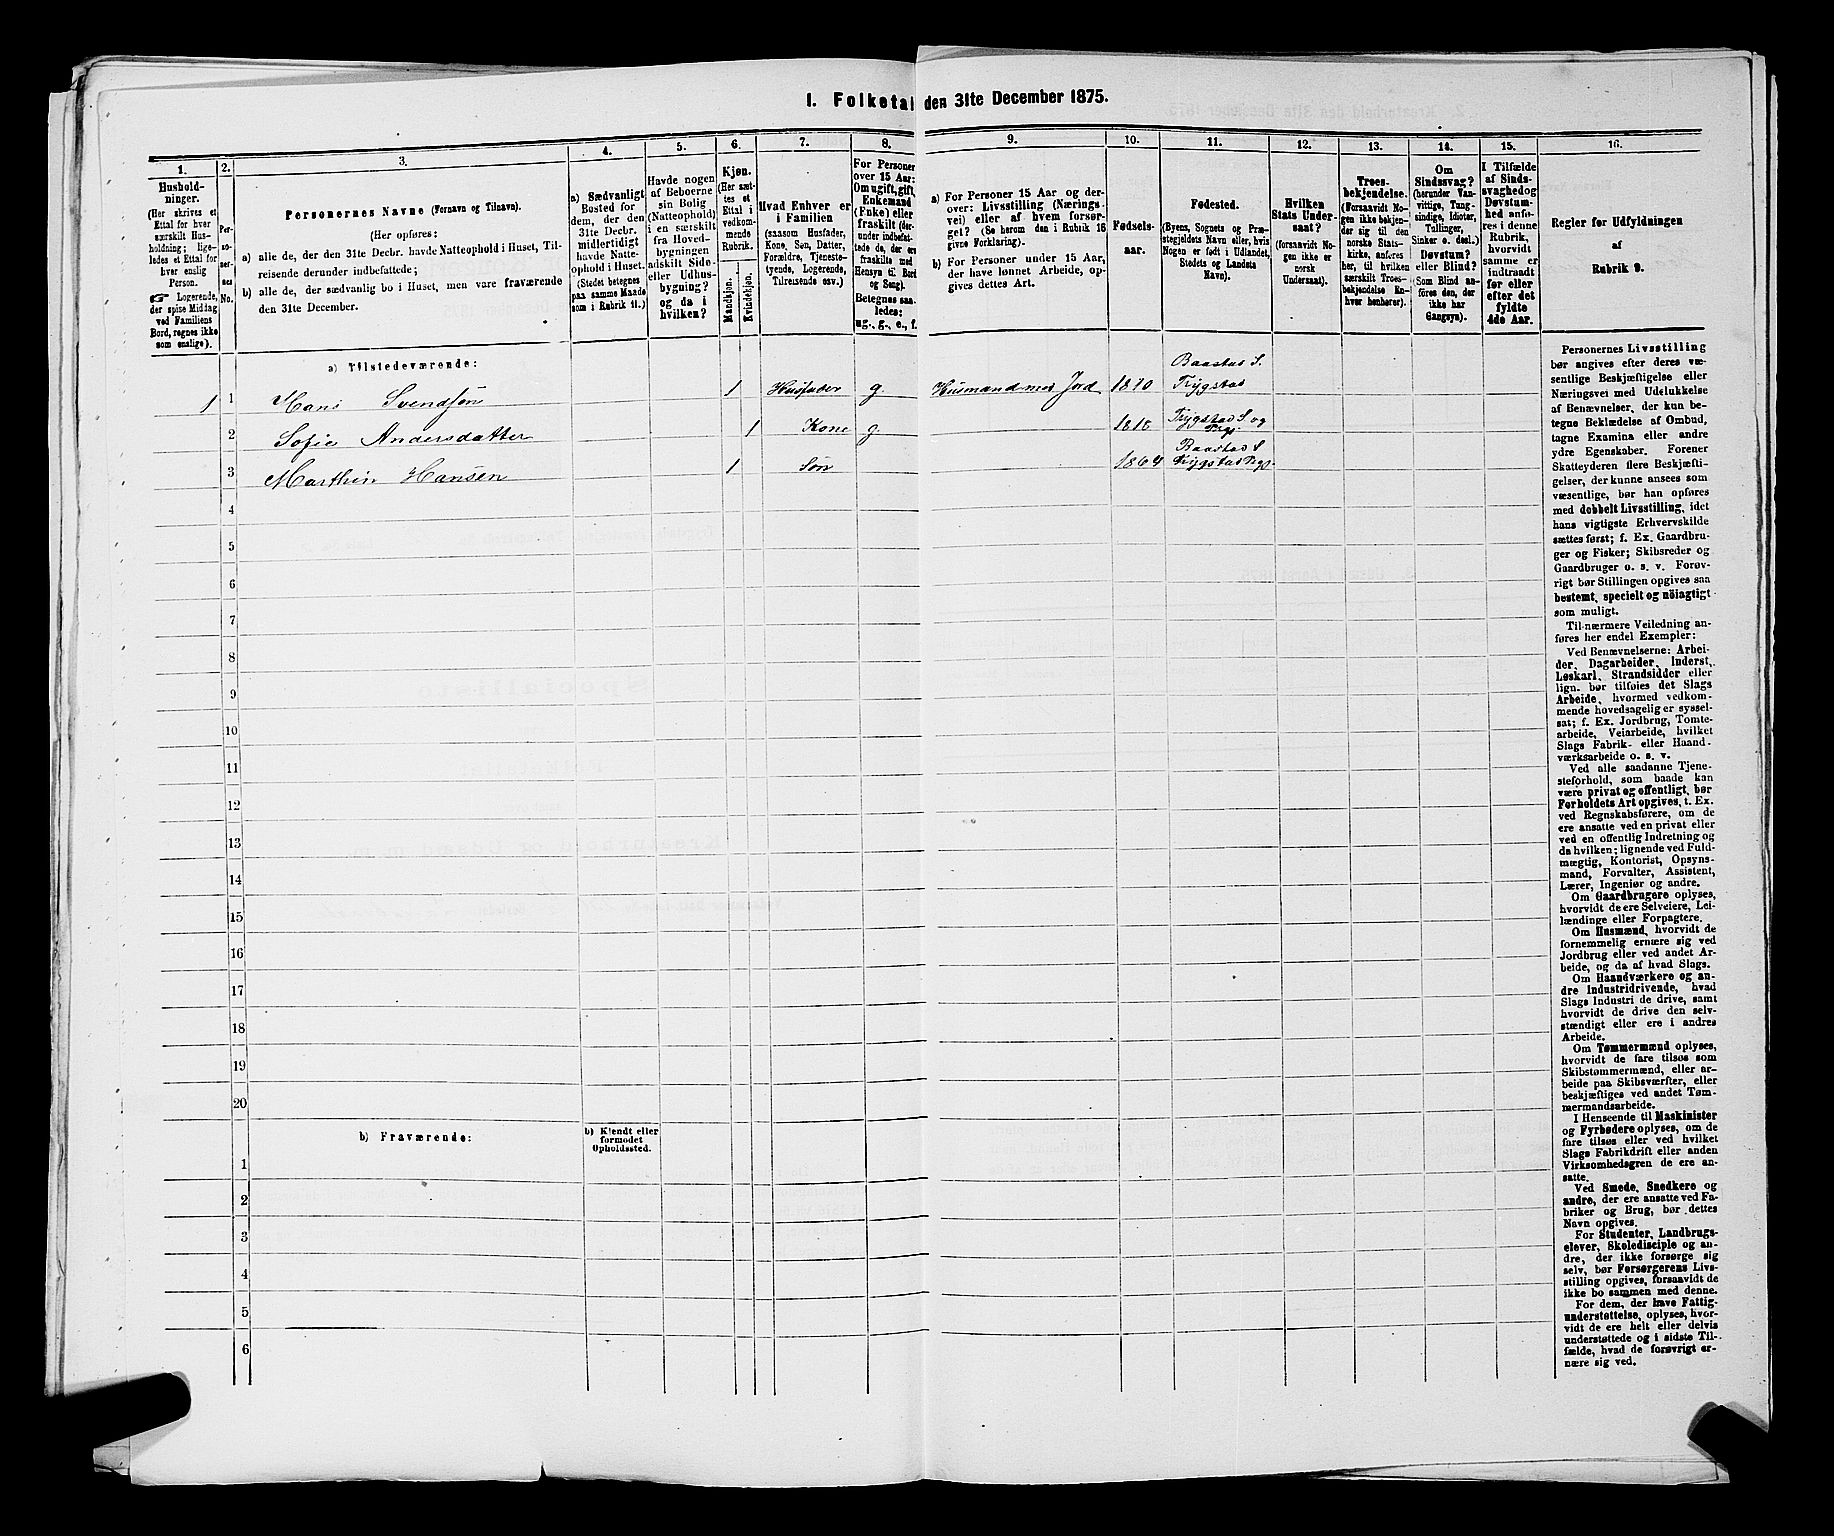 1. Folketal den 31te December 1875.
1.
2.
3.
4.
5.
6.
7.
8.
9.
10.
11.
12.
13.
14.
15.
16.
Hushold-
ninger.
(Her skrives et
Ettal for hver
særskilt Hus-
holdning; lige-
ledes et Ettal for
hver enslig
Person.
☞ Logerende,
der spise Middag
ved Familiens
Bord, regnes ikke
som enslige).
Per-
so-
ner-
nes
No.
Personernes Navne (Fornavn og Tilnavn).
(Her opføres:
a) alle de, der den 31te Decbr. havde Natteophold i Huset, Til-
reisende derunder indbefattede;
b) alle de, der sædvanlig bo i Huset, men vare fraværende
den 31te December.
a) Sædvanligt
Bosted for
dem, der den
31te Decbr.
midlertidigt
havde Natte-
ophold i Huset.
(Stedet betegnes
paa samme Maade
som i Rubrik 11.)
Havde nogen
af Beboerne
sin Bolig
(Natteophold)
i en særskilt
fra Hoved-
bygningen
adskilt Side-
eller Udhus-
bygning?
og da i
hvilken?
Kjøn.
(Her sæt-
tes et
Ettal i
vedkom-
mende
Rubrik.
Mandkjøn.
Kvindekjøn.
Hvad Enhver er
i Familien
(saasom Husfader,
Kone, Søn, Datter,
Forældre, Tjeneste-
tyende, Logerende,
Tilreisende osv.)
For Personer
over 15 Aar:
Om ugift, gift,
Enkemand
(Enke) eller
fraskilt (der-
under indbefat-
tede de, der ere
fraskilte med
Hensyn til Bord
og Seng).
Betegnes saa-
ledes:
ug., g., e., f.
a) For Personer 15 Aar og der-
over: Livsstilling (Nærings-
vei) eller af hvem forsør-
get? (Se herom den i Rubrik 16
givne Forklaring).
b) For Personer under 15 Aar,
der have lønnet Arbeide, op-
gives dettes Art.
Fødsels-
aar.
Fødested.
(Byens, Sognets og Præ-
stegjeldets Navn eller, hvis
Nogen er født i Udlandet,
Stedets og Landets
Navn).
Hvilken
Stats Under-
saat?
(forsaavidt No-
gen ikke er
norsk
Undersaat).
Troes-
bekjendelse.
(Forsaavidt No-
gen ikke bekjen-
der sig til den
norske Stats-
kirke, anføres
her, til hvilken
særskilt Troes-
bekjendelse En-
hver henhører).
Om
Sindssvag?
(herunder Van-
vittige, Tung-
sindige, Idioter,
Tullinger,
Sinker o. desl.)
Døvstum?
eller Blind?
(Som Blind an-
føres den, der
ikke har
Gangsyn).
I Tilfælde
af Sinds-
svaghed og
Døvstum-
hed anfø-
res i denne
Rubrik,
hvorvidt
samme er
indtraadt
før eller
efter det
fyldte
4de Aar.
Regler for Udfyldningen
af
Rubrik 9.
a) Tilstedeværende:
1 1 Hans Svendsøn 1 Husfader g Husmand med Jord 1810 Baastad S. Trygstad
2 Sofie Andersdatter 1 Kone g Trygstad S og
3 Marthin Hansen 1 Søn 1864 Baastad S Trygstad Pgj.
4
5
6
7
8
9
10
11
12
13
14
15
16
17
18
19
20
b) Fraværende:
b) Kjendt eller
formodet
Opholdssted.
1
2
3
4
5
6
Personernes Livsstilling
bør angives efter deres væ-
sentlige Beskjæftigelse eller
Næringsvei med Udelukkelse
af Benævnelser, der kun be-
tegne Beklædelse af Ombud,
tagne Examina eller andre
ydre Egenskaber. Forener
Skatteyderen flere Beskjæfti-
gelser, der kunne ansees som
væsentlige, bør han opføres
med dobbelt Livsstilling, idet
hans vigtigste Erhvervskilde
sættes først; f. Ex. Gaardbru-
ger og Fisker; Skibsreder og
Gaardbruger o. s. v. Forøv-
rigt bør Stillingen opgives saa
bestemt, specielt og nøiagtigt
som muligt.
Til nærmere Veiledning an-
føres her endel Exempler:
Ved Benævnelserne: Arbei-
der, Dagarbeider, Inderst,
Løskarl, Strandsidder eller
lign. bør tilføies det Slags
Arbeide, hvormed vedkom-
mende hovedsagelig er syssel-
sat; f. Ex. Jordbrug, Tomte-
arbeide, Veiarbeide, hvilket
Slags Fabrik- eller Haand-
værksarbeide o. s. v.
Ved alle saadanne Tjene-
steforhold, som baade kan
være privat og offentligt, bør
Forholdets Art opgives, t. Ex.
ved Regnskabsførere, om de
ere ansatte ved en privat eller
ved en offentlig Indretning og
da hvilken; lignende ved Fuld-
mægtig, Kontorist, Opsyns-
mand, Forvalter, Assistent,
Lærer, Ingeniør og andre.
Om Gaardbrugere oplyses,
hvorvidt de ere Selveiere, Lei-
lændinge eller Forpagtere.
Om Husmænd, hvorvidt de
fornemmelig ernære sig ved
Jordbrug eller ved andet Ar-
beide, og da af hvad Slags.
Om Haandværkere og an-
dre Industridrivende, hvad
Slags Industri de drive, samt
hvorvidt de drive den selv-
stændigt eller ere i andres
Arbeide.
Om Tømmermænd oplyses,
hvorvidt de fare tilsøs som
Skibstømmermænd, eller ar-
beide paa Skibsværfter, eller
beskjæftiges ved andet Tøm-
mermandsarbeide.
I Henseende til Maskinister
og Fyrbødere oplyses, om de
fare tilsøs eller ved hvilket
Slags Fabrikdrift eller anden
Virksomhedsgren de ere an-
satte.
Ved Smede, Snedkere og
andre, der ere ansatte ved Fa-
briker og Brug, bør dettes
Navn opgives.
For Studenter, Landbrugs-
elever, Skoledisciple og an-
dre, der ikke forsørge sig
selv, bør Forsørgerens Livs-
stilling opgives, forsaavidt de
ikke bo sammen med denne.
For dem, der have Fattig-
understøttelse, oplyses, hvor-
vidt de ere helt eller delvis
understøttede og i sidste Til-
fælde, hvad de forøvrigt er-
nære sig ved.